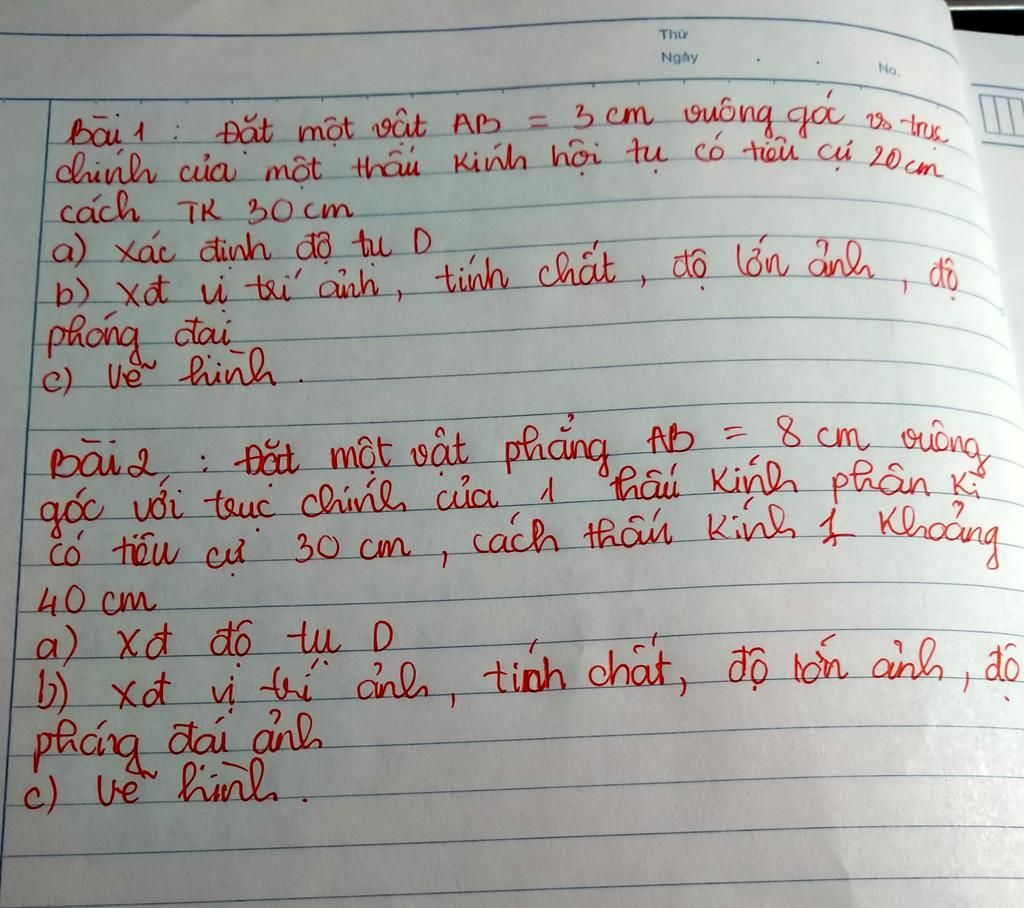 Thứ
Ngày . .
No.
Bài 1 : Đặt một vật AB = 3 cm vuông góc vs trục
chính của một thấu kính hội tụ có tiêu cự 20cm
cách TK 30 cm
a) xác định độ tụ D
b) Xđ vị trí ảnh, tính chất, độ lớn ảnh, độ
phóng đại
c) Vẽ hình.
Bài 2 : Đặt một vật phẳng AB = 8 cm vuông
góc với trục chính của 1 thấu kính phân kì
có tiêu cự 30 cm, cách thấu kính 1 khoảng
40 cm
a) Xđ độ tụ D
b) Xđ vị trí ảnh, tính chất, độ lớn ảnh, độ
phóng đại ảnh
c) Vẽ hình.